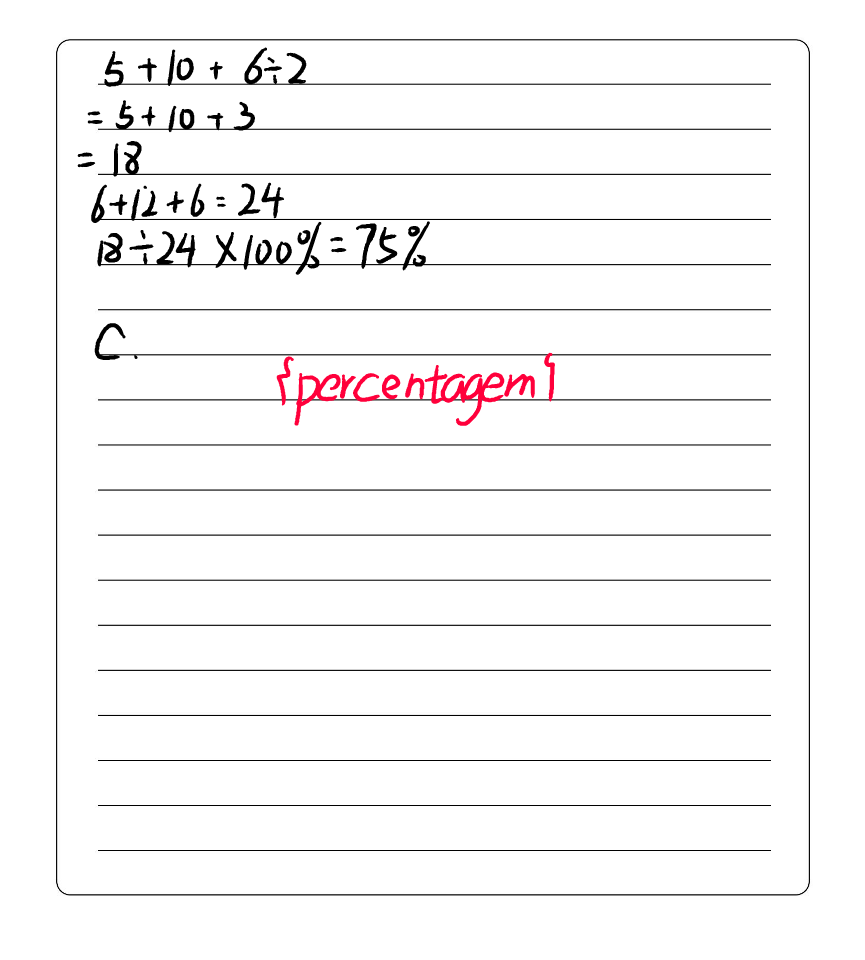 5 + 10 + 6÷2
= 5 + 10 + 3
= 18
6+12+6=24
18÷24 ×100%=75%
C.
{percentagem}